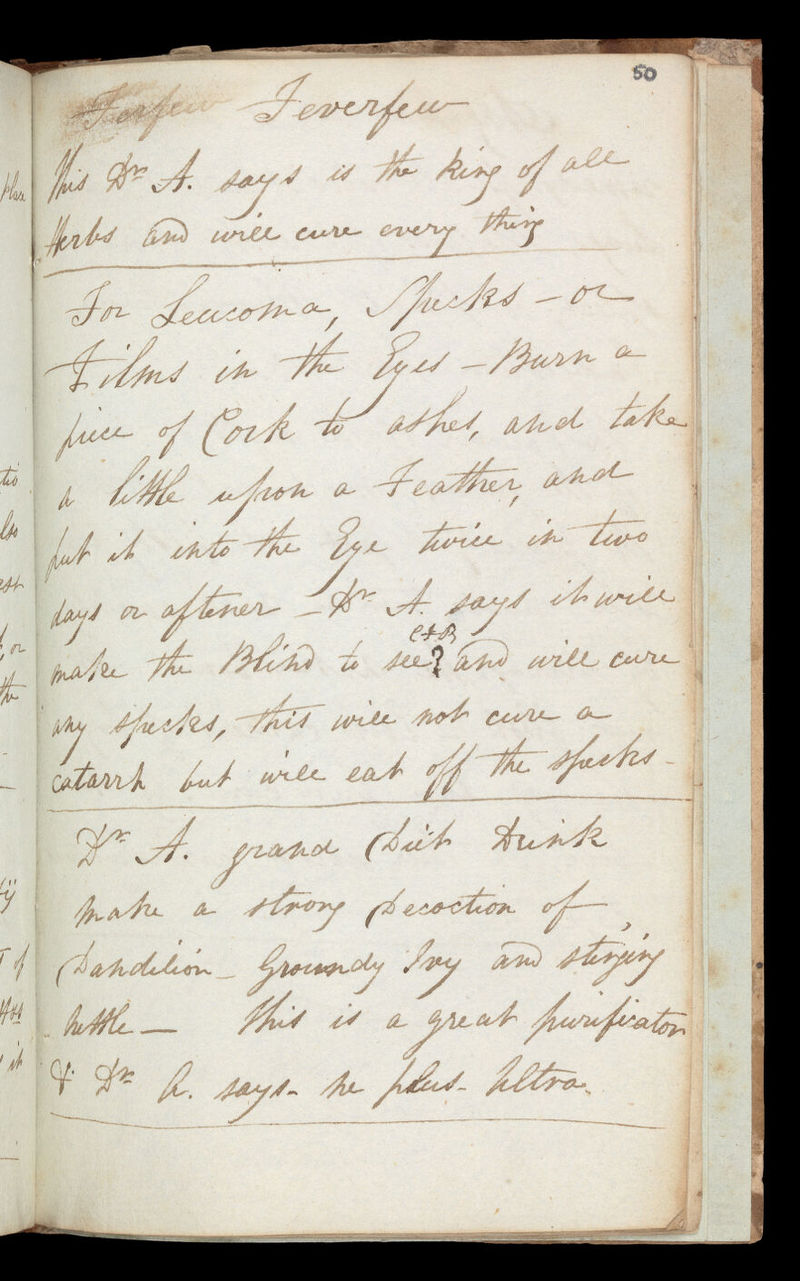 50
Ferfew Feverfew
This Dr A. says is the king of all
Herbs and will cure every thing
For Leucoma, Specks - or
Films in the Eyes - Burn a
piece of Cork to ashes, and take
a little upon a Feather, and
put it into the Eye twice in two
days or oftener - Dr A. says it will
make the Blind to see? and will cure
any specks, this will not cure a
catarrh but will eat off the specks -
Dr A. grand Diet Drink
make a strong Decoction of
Dandilion - Groundy Ivy and stinging
nettle - This is a great purificator
& Dr A. says - ne plus - ultra.